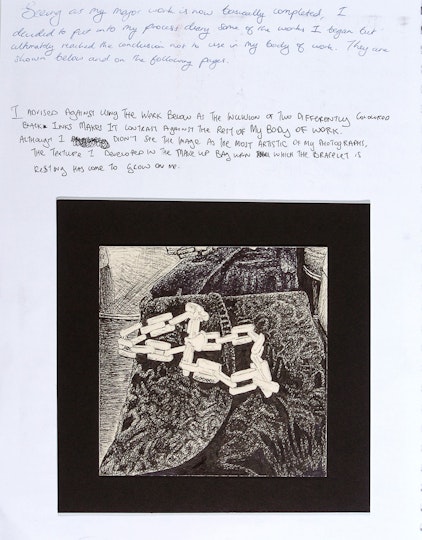 Seeing as my major work is now basically completed, I
decided to put into my process diary some of the works I began but
ultimately reached the conclusion not to use in my body of work. They are
shown below and on the following pages.
I ADVISED AGAINST USING THE WORK BELOW AS THE INCLUSION OF TWO DIFFERENTLY COLOURED
BLACK INKS MAKES IT CONTRAST AGAINST THE REST OF MY BODY OF WORK.
ALTHOUGH I DIDN'T SEE THE IMAGE AS THE MOST ARTISTIC OF MY PHOTOGRAPHS,
THE TEXTURE I DEVELOPED IN THE MAKE UP BAG WHICH THE BRACELET IS
RESTING HAS COME TO GROW ON ME.